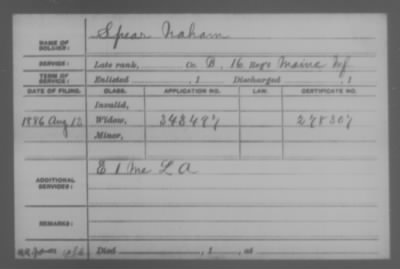 NAME OF SOLDIER: Spear Naham
SERVICE: Late rank, Co B, 16 Reg't Maine Inf
TERM OF SERVICE: Enlisted , 1 Discharged , 1
DATE OF FILING. CLASS. APPLICATION NO. LAW. CERTIFICATE NO.
Invalid,
1886 Aug 13 Widow, 348497 278307
Minor,
ADDITIONAL SERVICES: E 1 Me L A
REMARKS:
Died , 1 , at